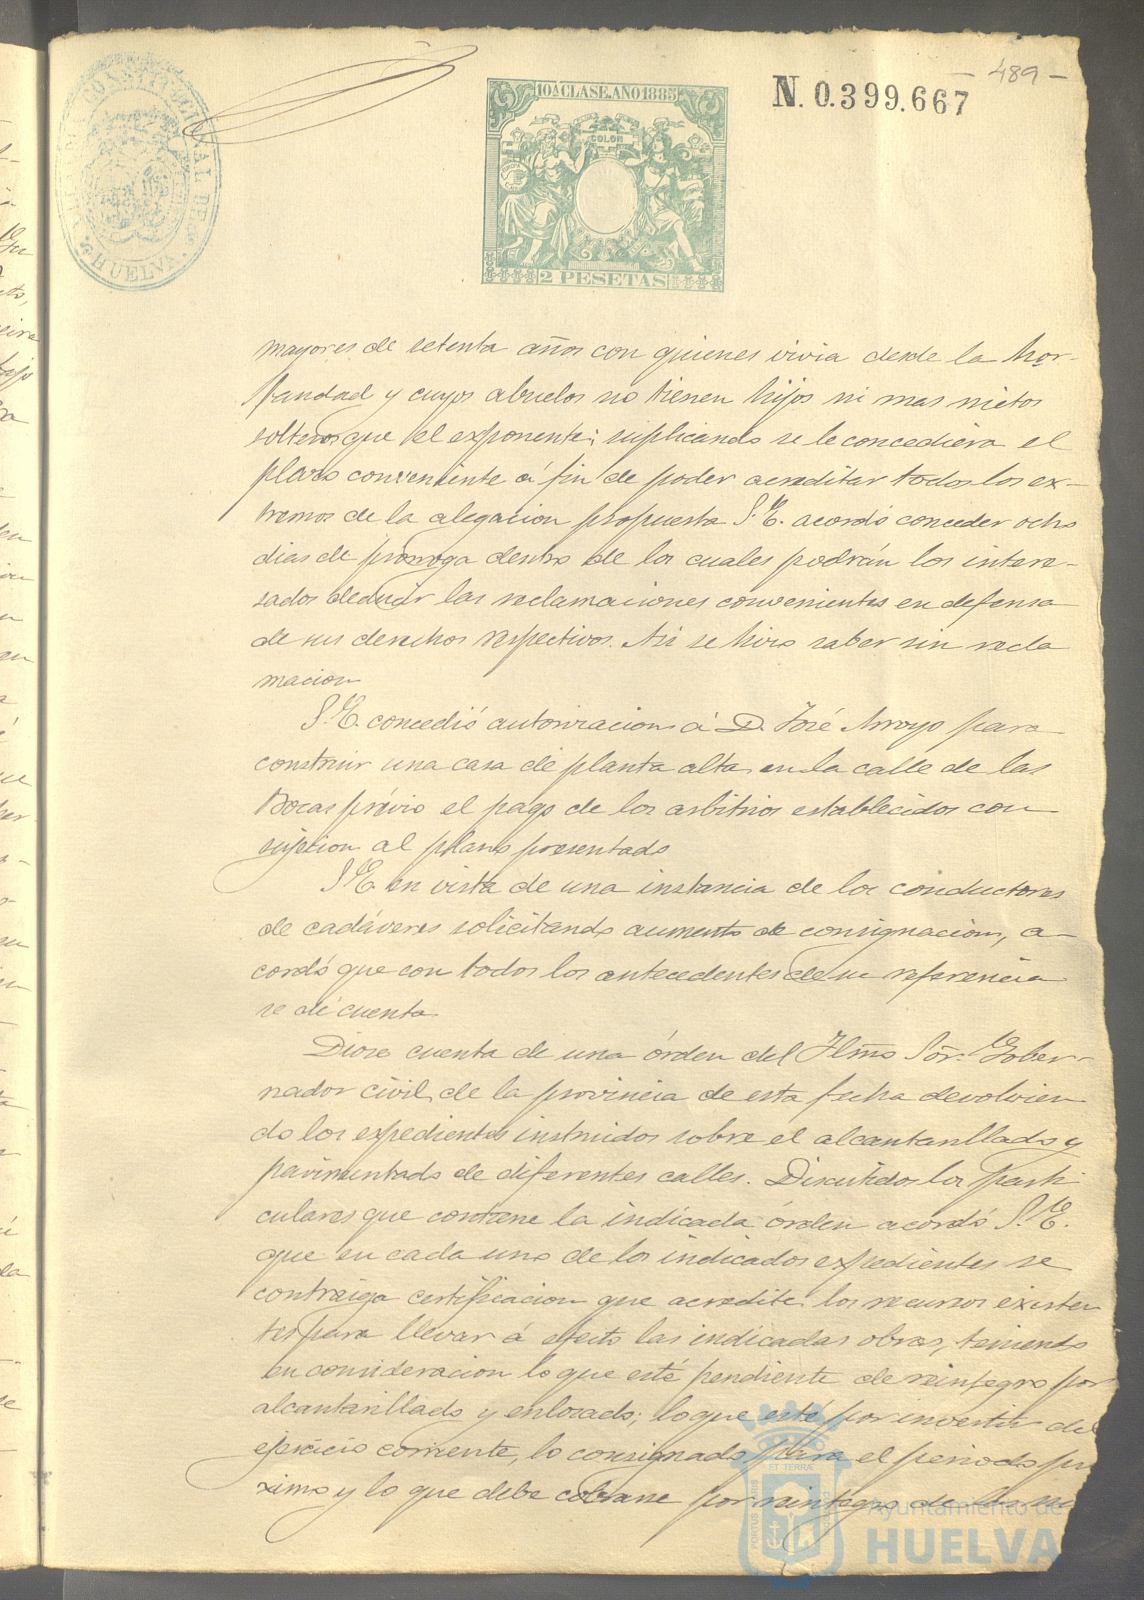 -489-
N. 0.399.667
10ª CLASE. AÑO 1885
COLON
2 PESETAS
CONSTITUCIONAL DE
HUELVA
mayores de setenta años con quienes vivia desde la hor-
fandad y cuyos abuelos no tienen hijos ni mas nietos
solteros que el exponente; suplicando se le concediera el
plazo conveniente á fin de poder acreditar todos los ex-
tremos de la alegacion propuesta S. E. acordó conceder ocho
dias de próroga dentro de los cuales podrán los intere-
sados deducir las reclamaciones convenientes en defensa
de sus derechos respectivos. Asi se hizo saber sin recla
macion
S. E. concedió autorizacion á D. José Arroyo para
construir una casa de planta alta en la calle de las
Bocas prévio el pago de los arbitrios establecidos con
sujecion al plano presentado
S. E. en vista de una instancia de los conductores
de cadáveres solicitando aumento de consignacion, a-
cordó que con todos los antecedentes de su referencia
se dé cuenta
Diose cuenta de una órden del Ilmo Sor. Gober-
nador civil de la provincia de esta fecha devolvien
do los expedientes instruidos sobre el alcantarillado y
pavimentado de diferentes calles. Discutidos los parti
culares que contiene la indicada órden acordó S. E.
que en cada uno de los indicados expedientes se
contraiga certificacion que acredite los recursos existen
tes para llevar á efecto las indicadas obras, teniendo
en consideracion lo que esté pendiente de reintegro por
alcantarillado y enlosado; lo que esté por invertir del
ejercicio corriente, lo consignado para el periodo pró
ximo y lo que debe cobrarse por reintegro de
PORTUS MARIS
ET TERRÆ
Ayuntamiento de
HUELVA